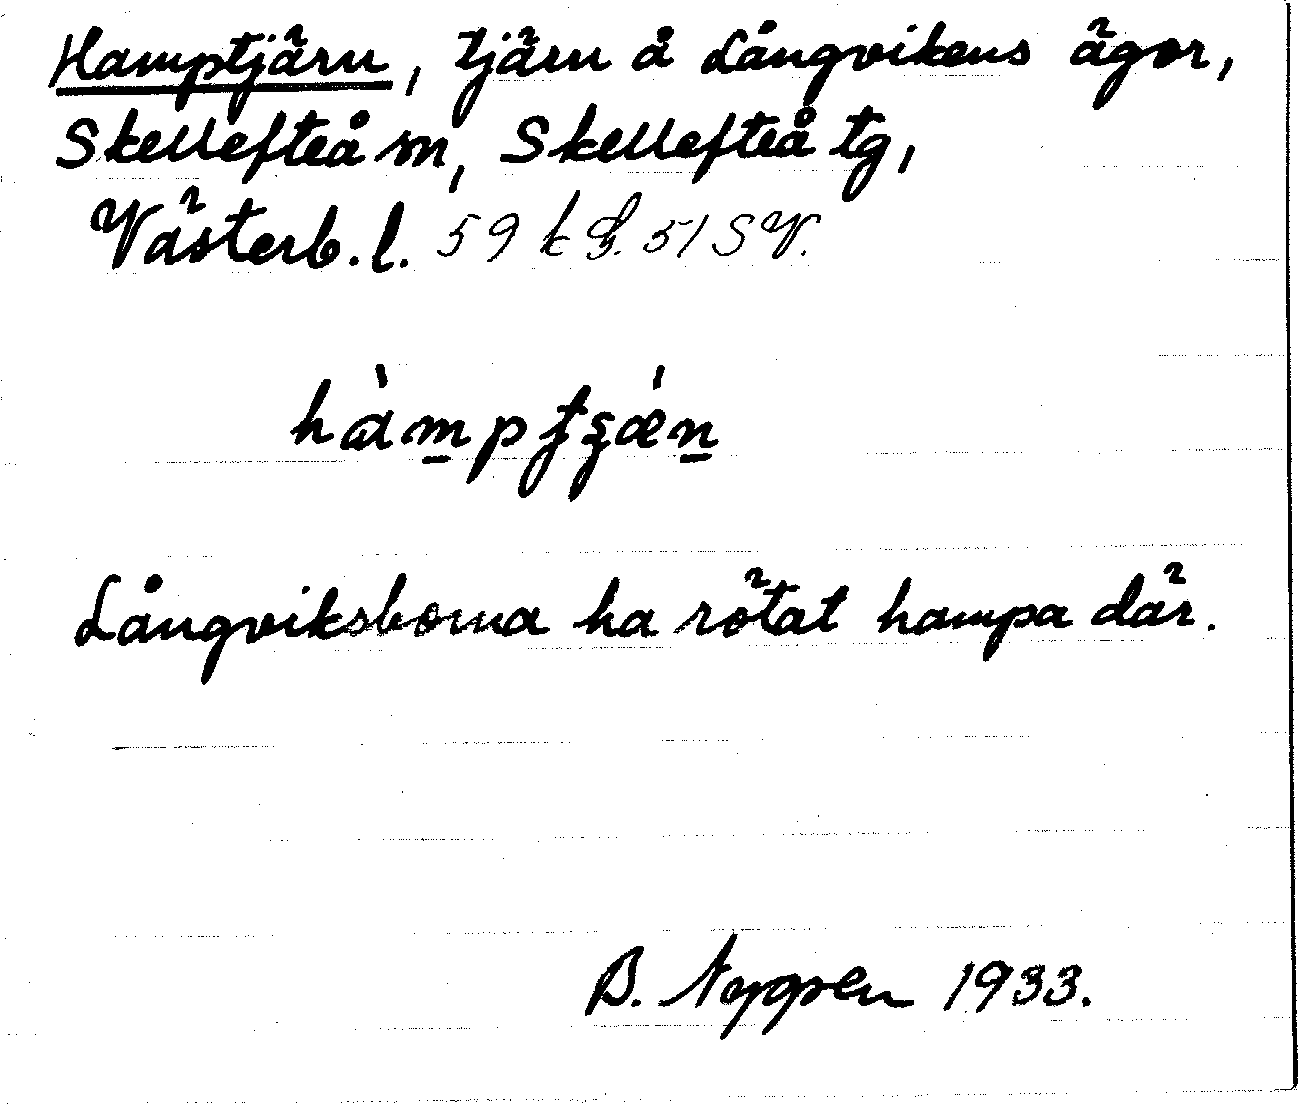 Hamptjärn, tjärn å Långvikens ägor,
Skellefteå sn, Skellefteå tg,
Västerb. l. 59 k 51 SV.
Långviksborna ha rötat hampa där.
B. Nygren 1933.